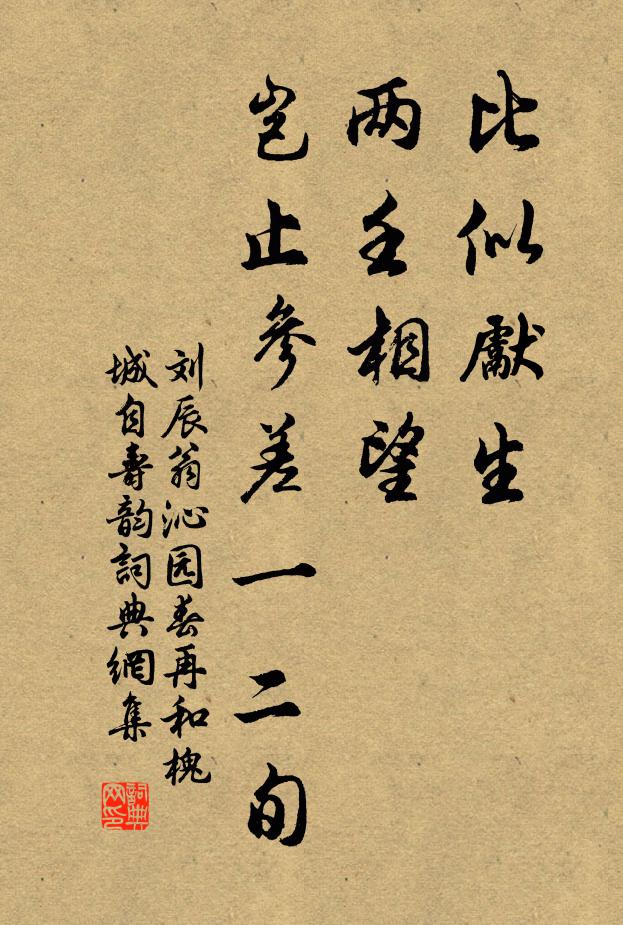 比似獻生
两壬相望
岂止參差一二旬
刘辰翁沁园春再和槐
城自壽韵詞典網集
詞典
网印